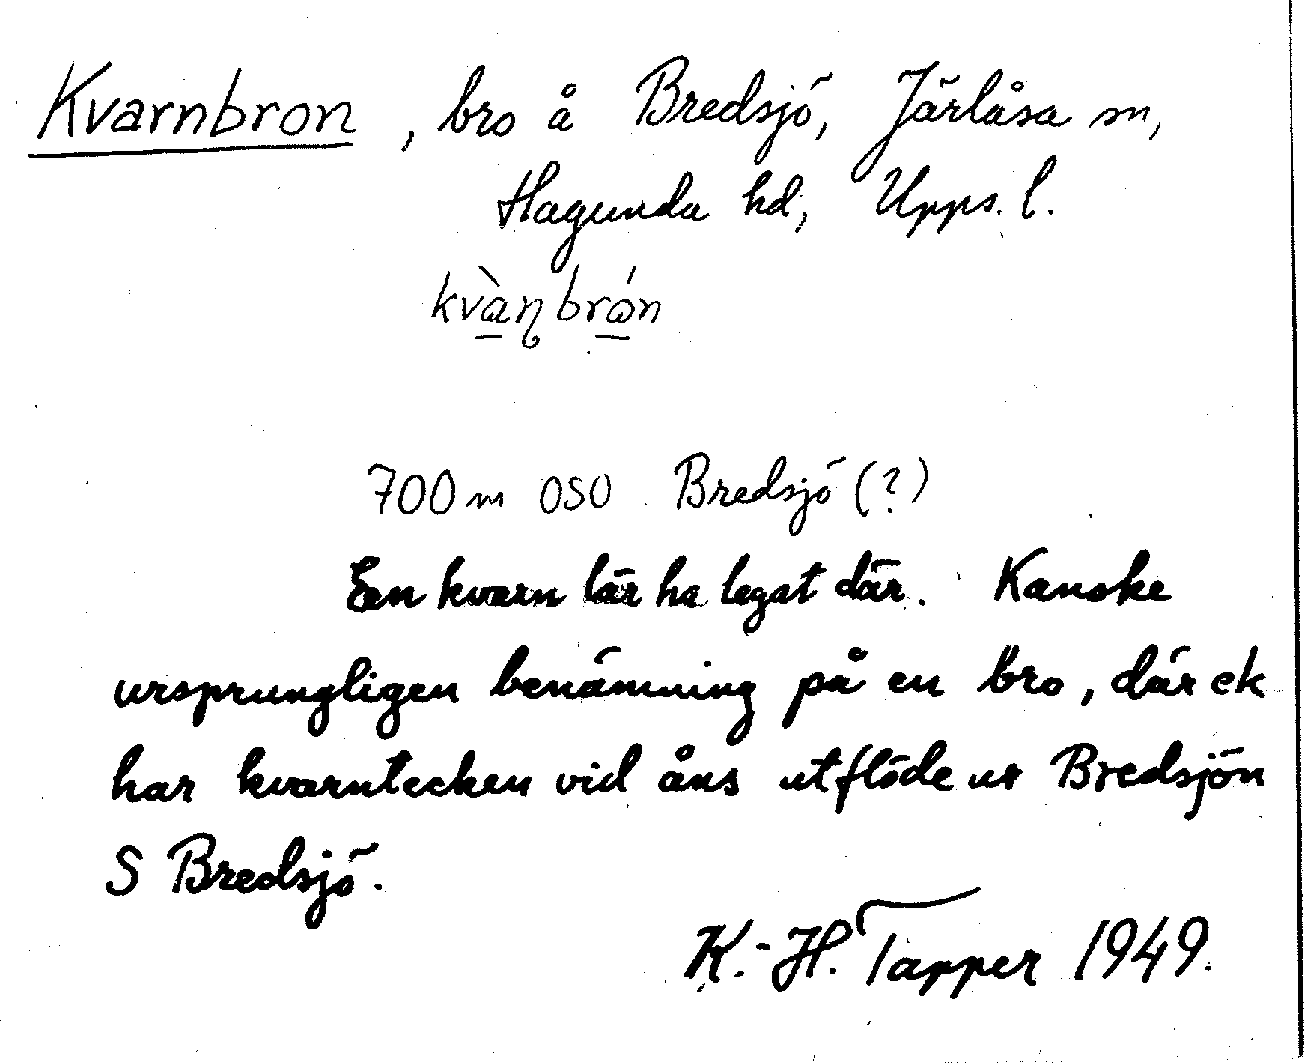 Kvarnbron, bro å Bredsjö, Järlåsa sn,
Hagunda hd, Upps. l.
kvàɳbrón
700 m OSO Bredsjö (?)
En kvarn lär ha legat där. Kanske
ursprungligen benämning på en bro, där ek
har kvarntecken vid åns utflöde ur Bredsjön
S Bredsjö.
K.-H. Tapper 1949.